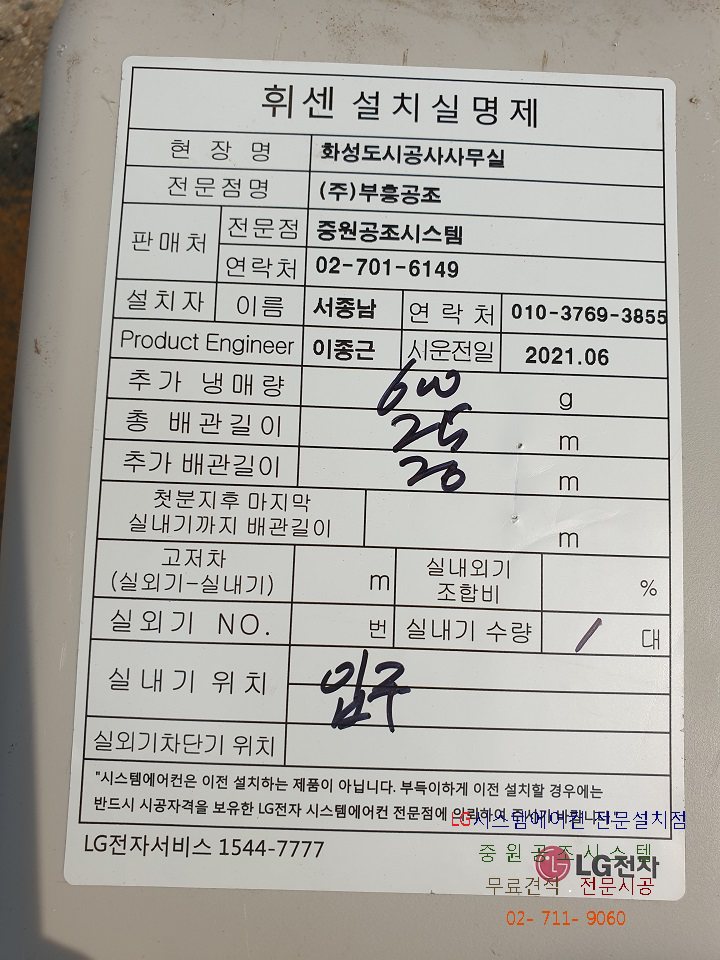 휘센 설치실명제
현 장 명 화성도시공사사무실
전문점명 (주)부흥공조
판매처 전문점 중원공조시스템
연락처 02-701-6149
설치자 이름 서종남 연 락 처 010-3769-3855
Product Engineer 이종근 시운전일 2021.06
추가 냉매량 600 g
총 배관길이 25 m
추가 배관길이 20 m
첫분지후 마지막
실내기까지 배관길이 m
고저차
(실외기-실내기) m 실내외기
조합비 %
실외기 NO. 번 실내기 수량 1 대
실내기 위치 입구
실외기차단기 위치
"시스템에어컨은 이전 설치하는 제품이 아닙니다. 부득이하게 이전 설치할 경우에는
반드시 시공자격을 보유한 LG전자 시스템에어컨 전문점에 의뢰하여 주시기 바랍니다."
LG시스템에어컨 전문설치점
LG전자서비스 1544-7777
중원공조시스템
LG전자
무료견적 전문시공
02- 711- 9060